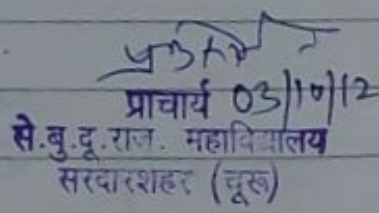 प्राचार्य 03/10/12
से.बु.दू.राज. महाविद्यालय
सरदारशहर (चूरू)